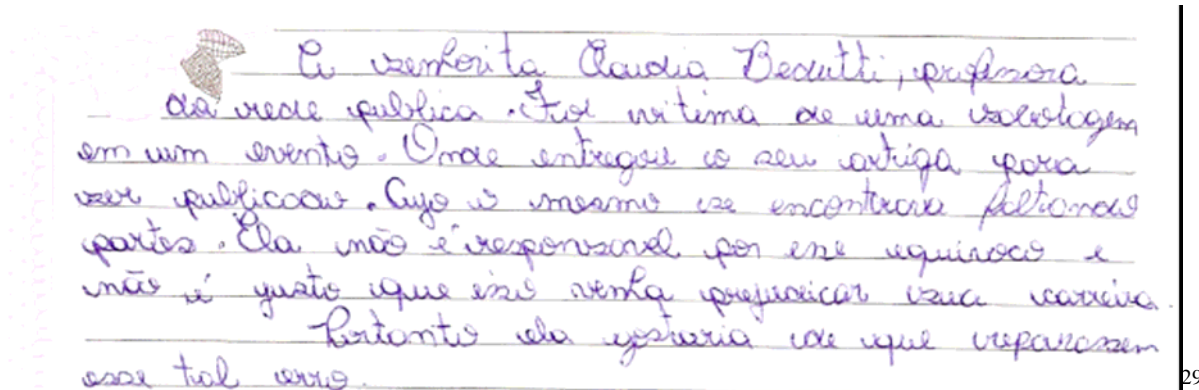 A senhorita Claudia Bedutti, professora
da rede publica. Foi vitima de uma sabotagem
em um evento. Onde entregou o seu artigo para
ser publicado. Cujo o mesmo se encontrava faltando
partes. Ela não é responsavel por esse equivoco e
não é justo que isso venha prejudicar sua carreira.
Portanto ela gostaria de que reparassem
esse tal erro.
29